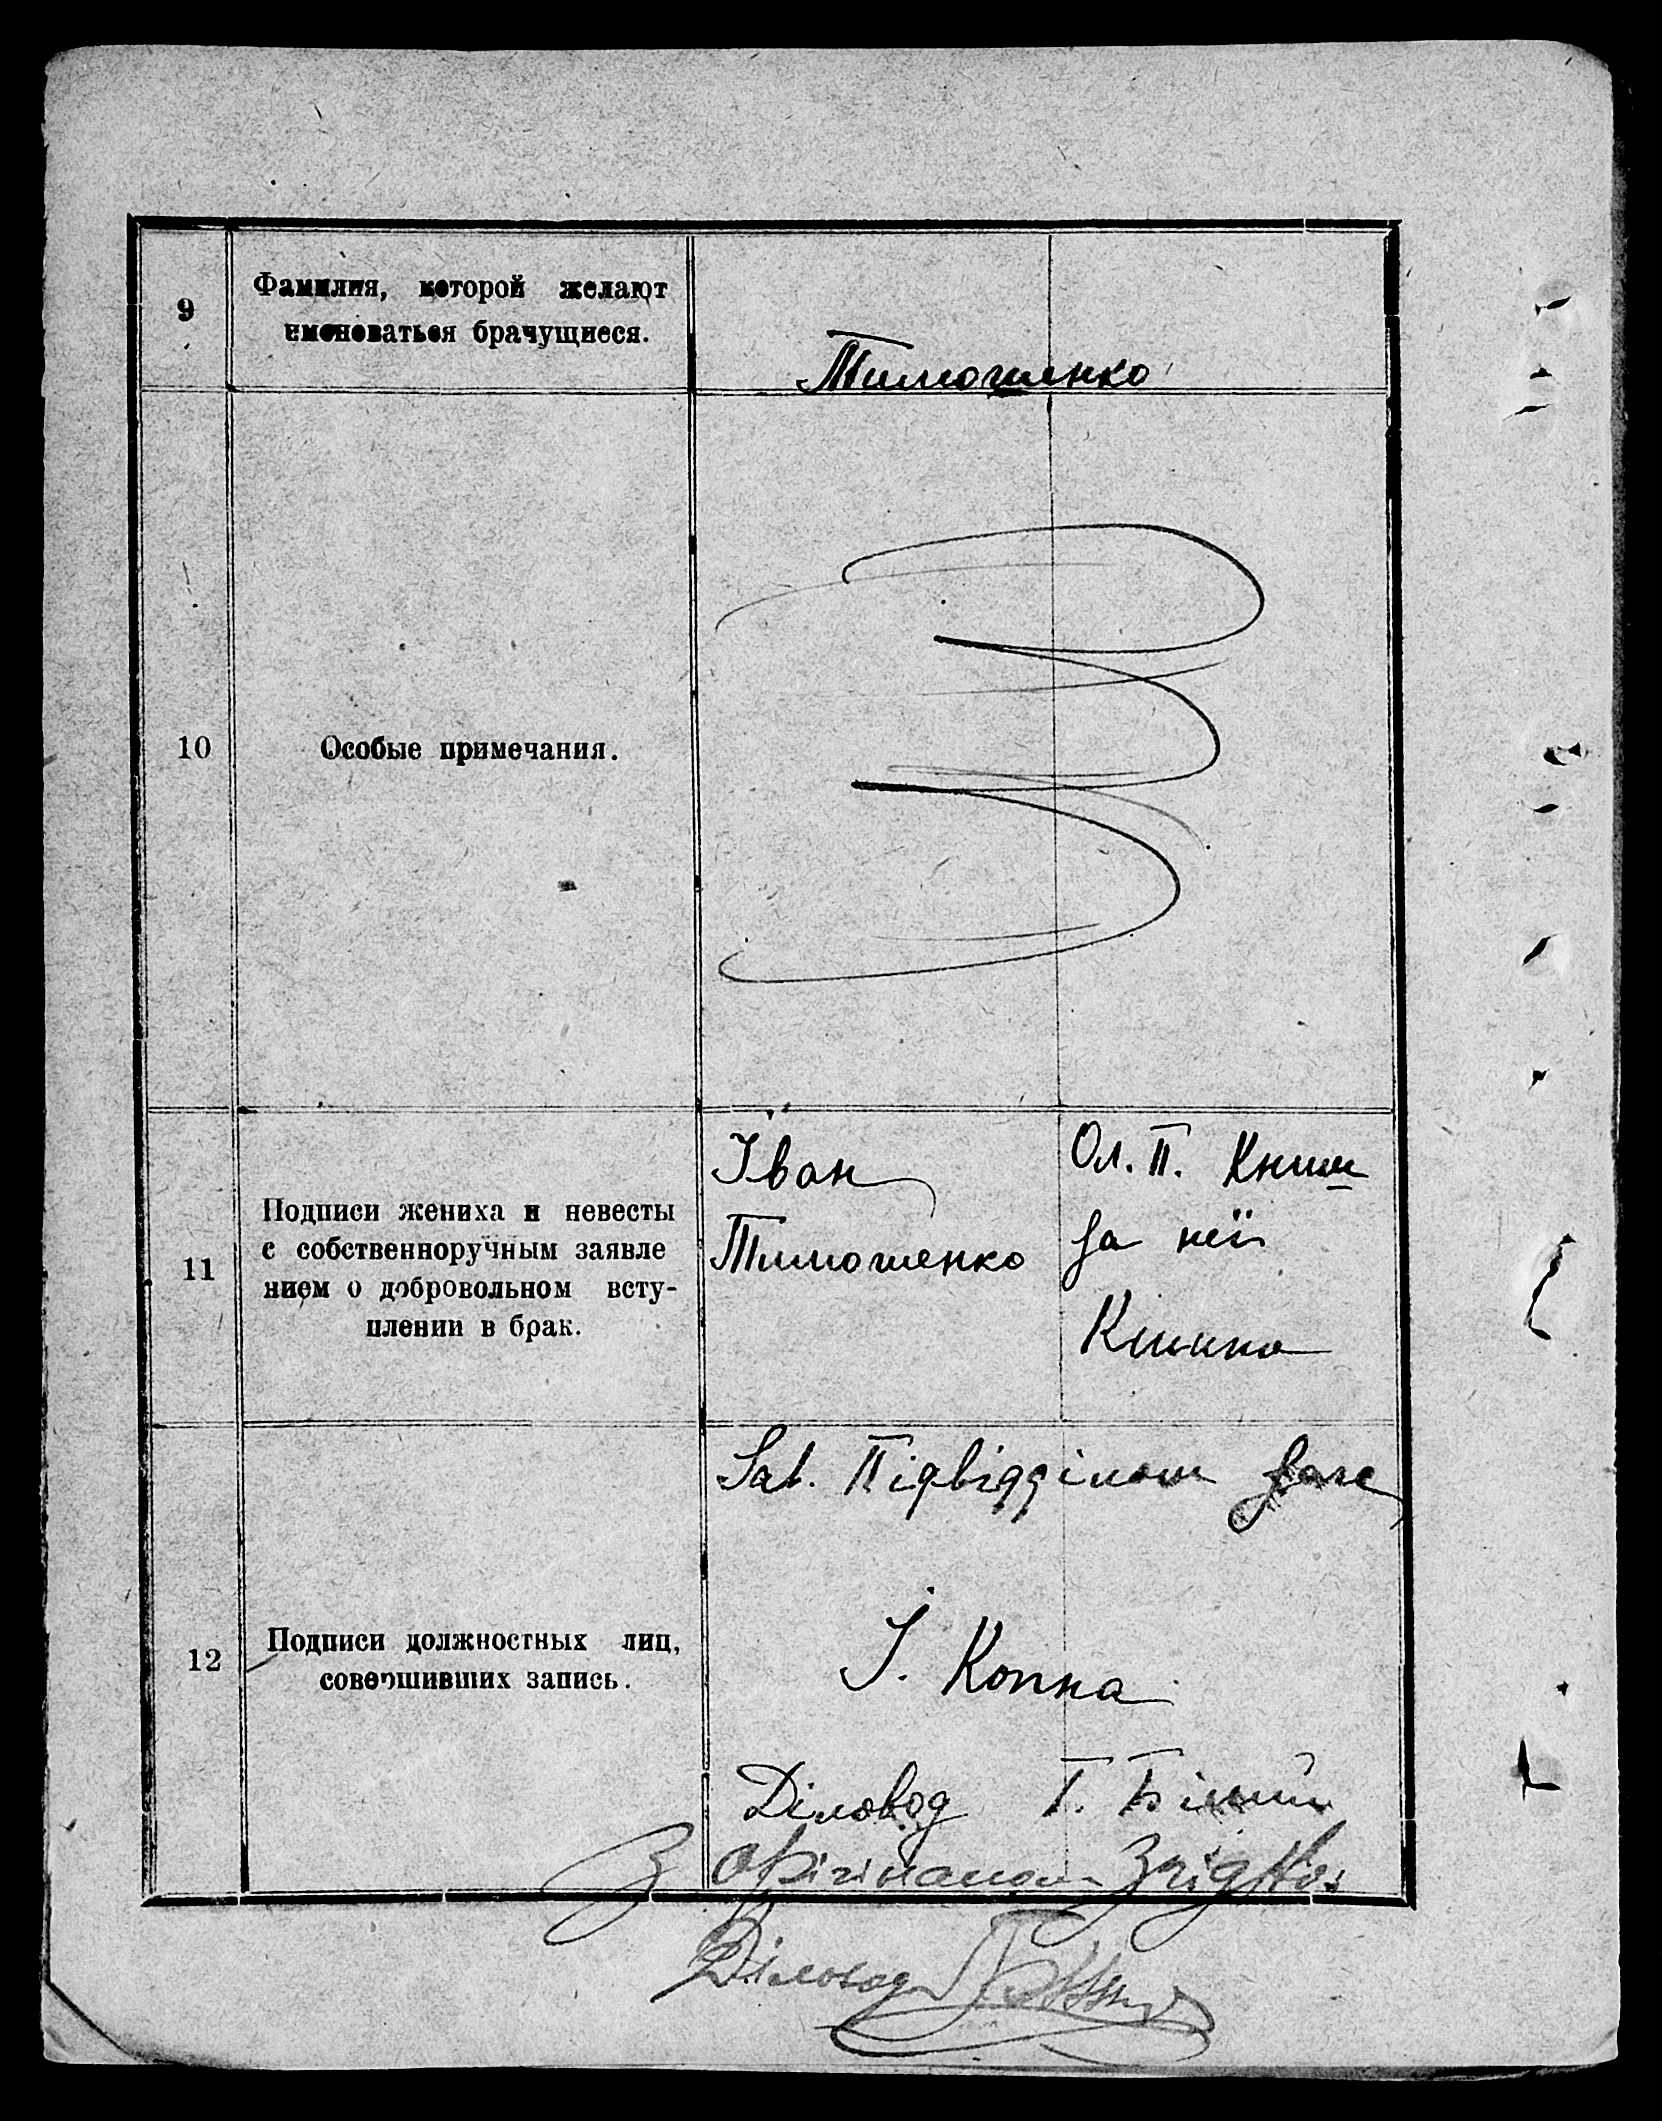 9
Фамилия, которой желают
именоваться брачущиеся.
Тимошенко
10
Особые примечания.
11
Подписи жениха и невесты
с собственноручным заявле
нием о добровольном всту-
плении в брак.
Іван
Тимошенко
Ол. П. Книш
за неї
12
Подписи должностных лиц,
совершивших запись.
Зав. Підвідділом
І. Копна
Діловод Г. Білий
З оригіналом
Діловод